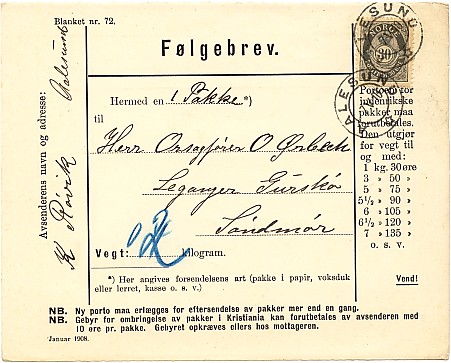 Blanket nr. 72.
Følgebrev.
AALESUND
NORGE
30
AALESUND
Afsenderens navn og adresse:
K Rovik Aalesund
Hermed en 1 Pakke *)
til
Herr
O
Leganger Gurskø
Söndmør
Vegt: kilogram.
*) Her angives forsendelsens art (pakke i papir, voksduk
eller lerret, kasse o. s. v.)
Portoen for
indenrikske
pakker maa
forutbetales.
Den utgjør
for vegt til
og med:
1 kg. 30 øre
3 » 50 »
5 » 75 »
5½ » 90 »
6 » 105 »
6½ » 120 »
7 » 135 »
o. s. v.
Vend!
NB. Ny porto maa erlægges for eftersendelse av pakker mer end en gang.
NB. Gebyr for ombringelse av pakker i Kristiania kan forutbetales av avsenderen med
10 øre pr. pakke. Gebyret opkræves ellers hos mottageren.
Januar 1908.